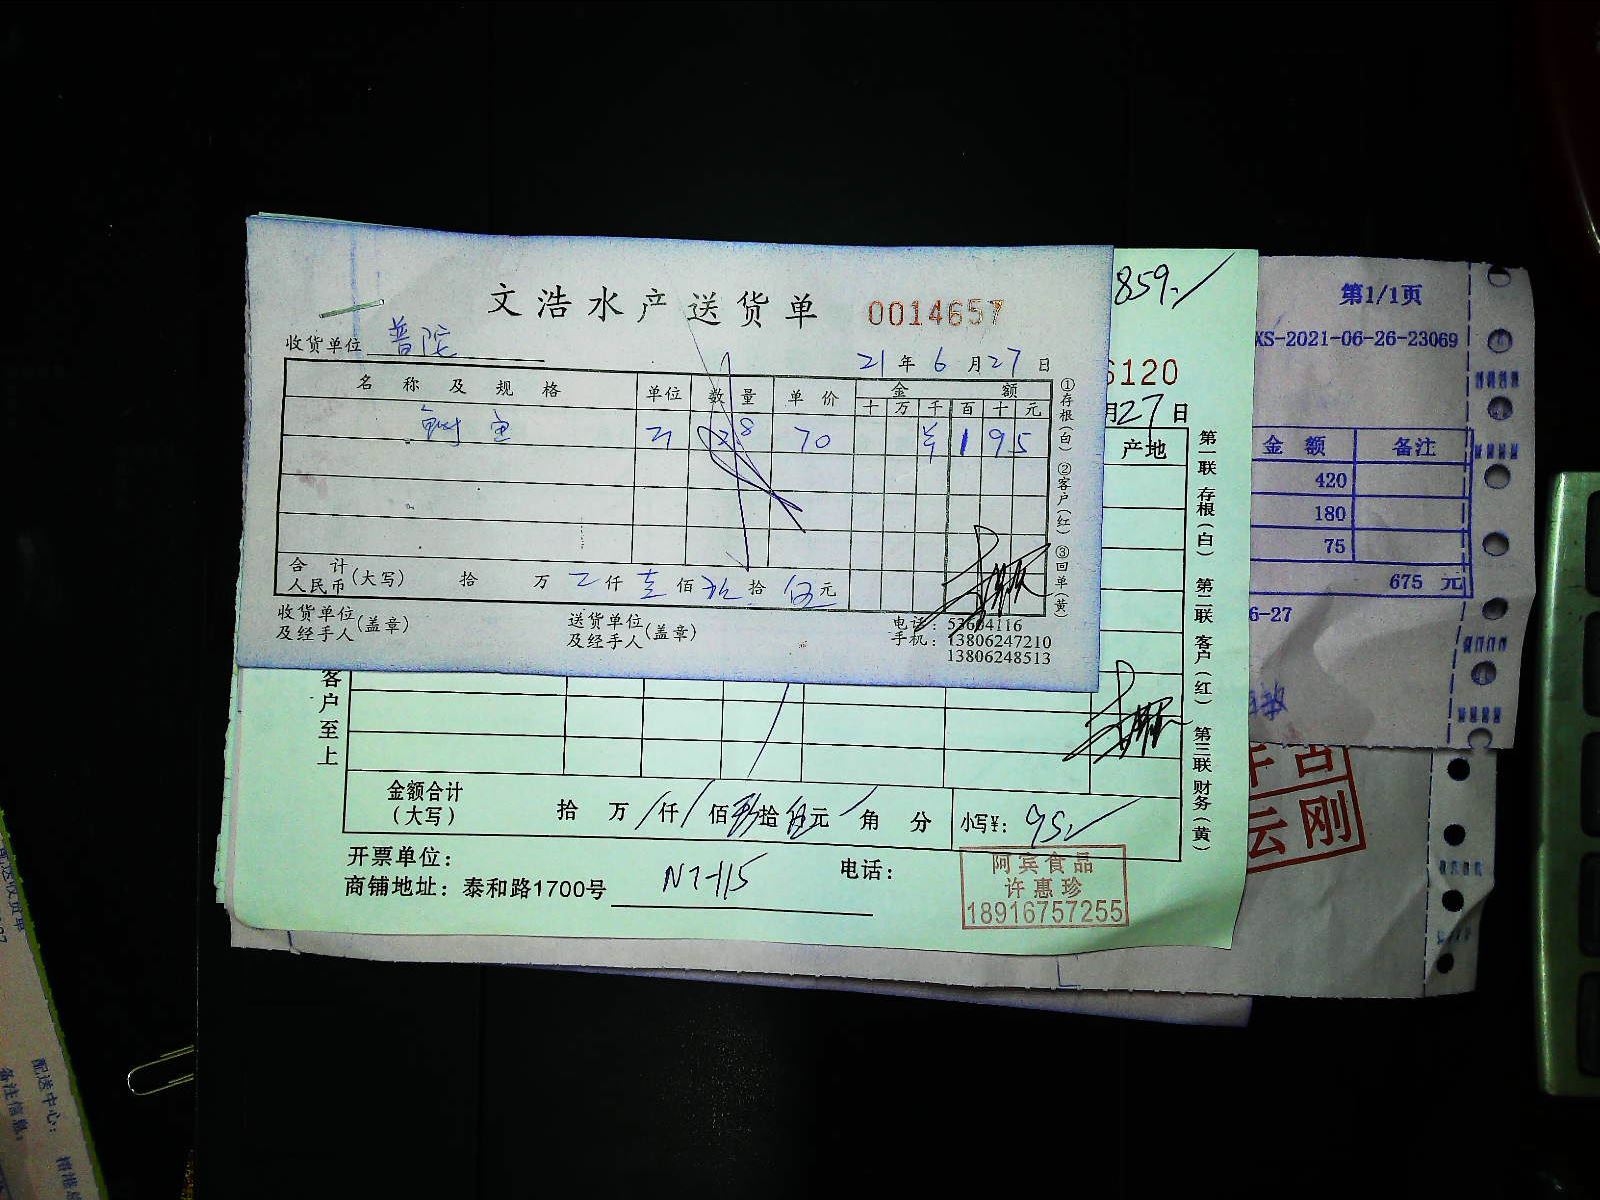 文浩水产送货单 0014657
收货单位 普陀
21年6月27日
名称及规格 单位 数量 单价 金额
十 万 千 百 十 元
2.8 70 ¥ 1 9 5
合计
人民币(大写) 拾 万 仟 壹 佰 玖 拾 伍 元
收货单位
及经手人(盖章)
送货单位
及经手人(盖章)
电话: 53604116
手机: 13806247210
13806248513
①存根(白) ②客户(红) ③回单(黄)
859.
6120
月27日
产地
第一联 存根(白) 第二联 客户(红) 第三联 财务(黄)
客户至上
金额合计
(大写)
拾 万 仟 佰 玖拾 伍元 角 分 小写¥: 95
开票单位:
电话:
商铺地址: 泰和路1700号 N7-115
阿宾食品
许惠珍
18916757255
第1/1页
XS-2021-06-26-23069
金额 备注
420
180
75
675 元
6-27
云刚
配送中心:
备注信息: